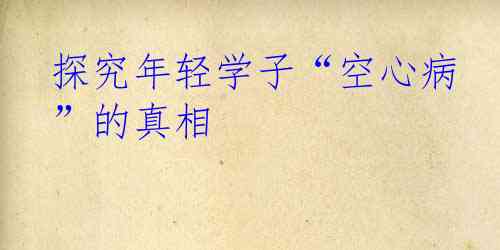 探究年轻学子“空心病
”的真相